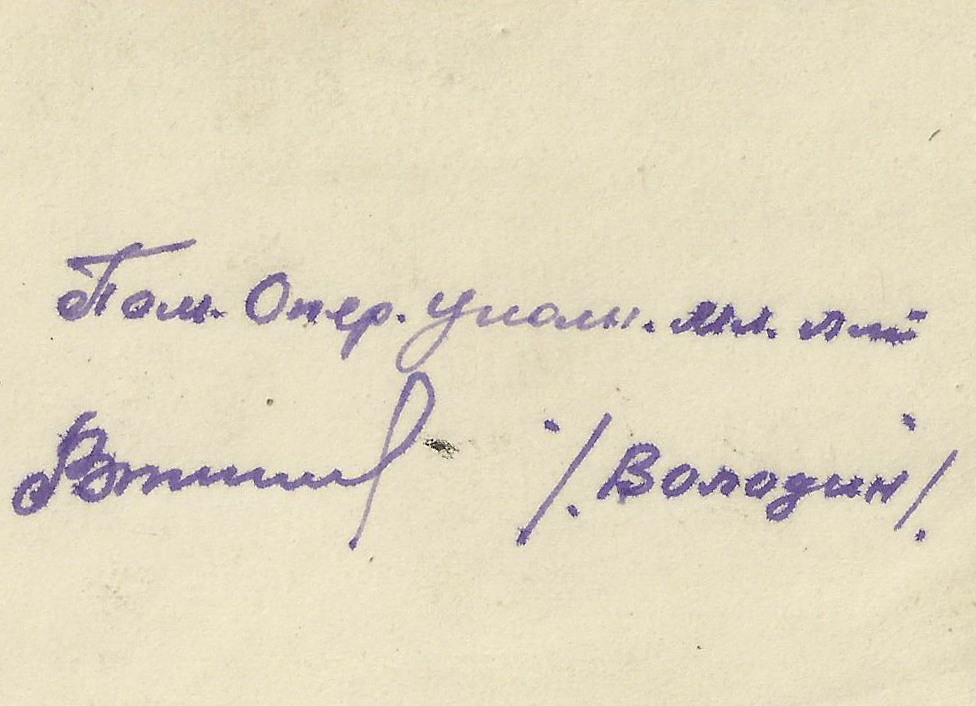 Пом. Опер. Уполн. мл. л-т
/. Володин /.